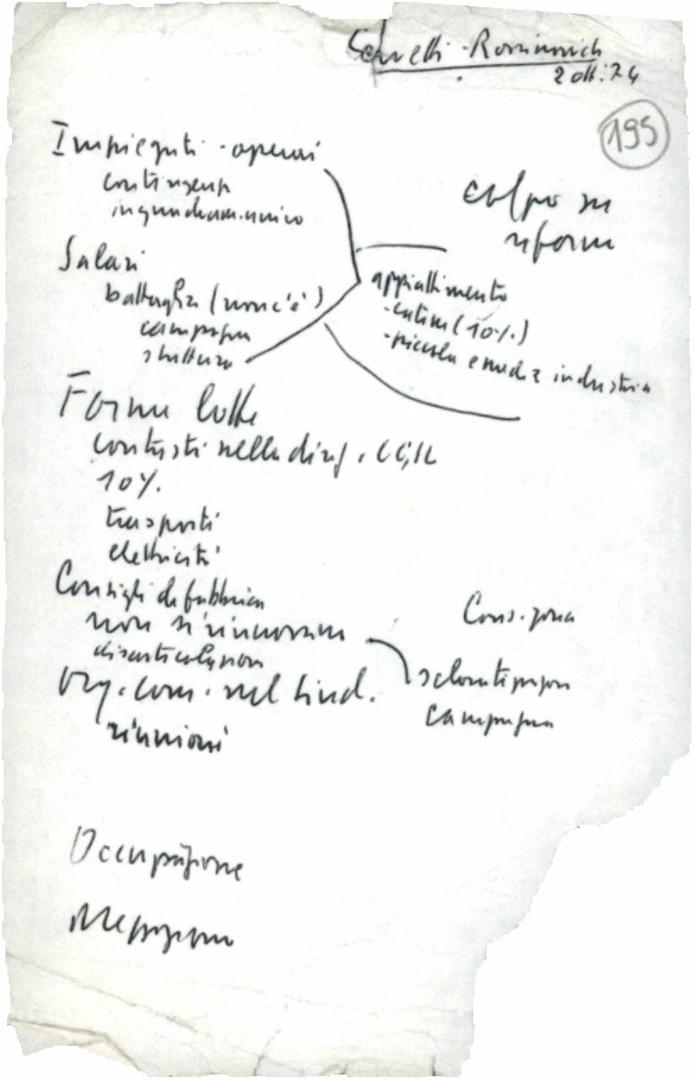 2 ott. 74
195
Impiegati - operai
contingenza
inquadram. unico
colpo su
riforme
Salari
battaglia (non c'è)
campagna
struttura
appiattimento
- (10%)
- piccola e media industria
Forme lotte
contrasti nella dirz. CGIL
10%
trasporti
elettricità
Consigli di fabbrica
non si rinnovano
disarticolazione
Cons. zona
sclerotizzazione
campagna
Org. com. nel sind.
riunioni
Occupazione
Mezzogiorno